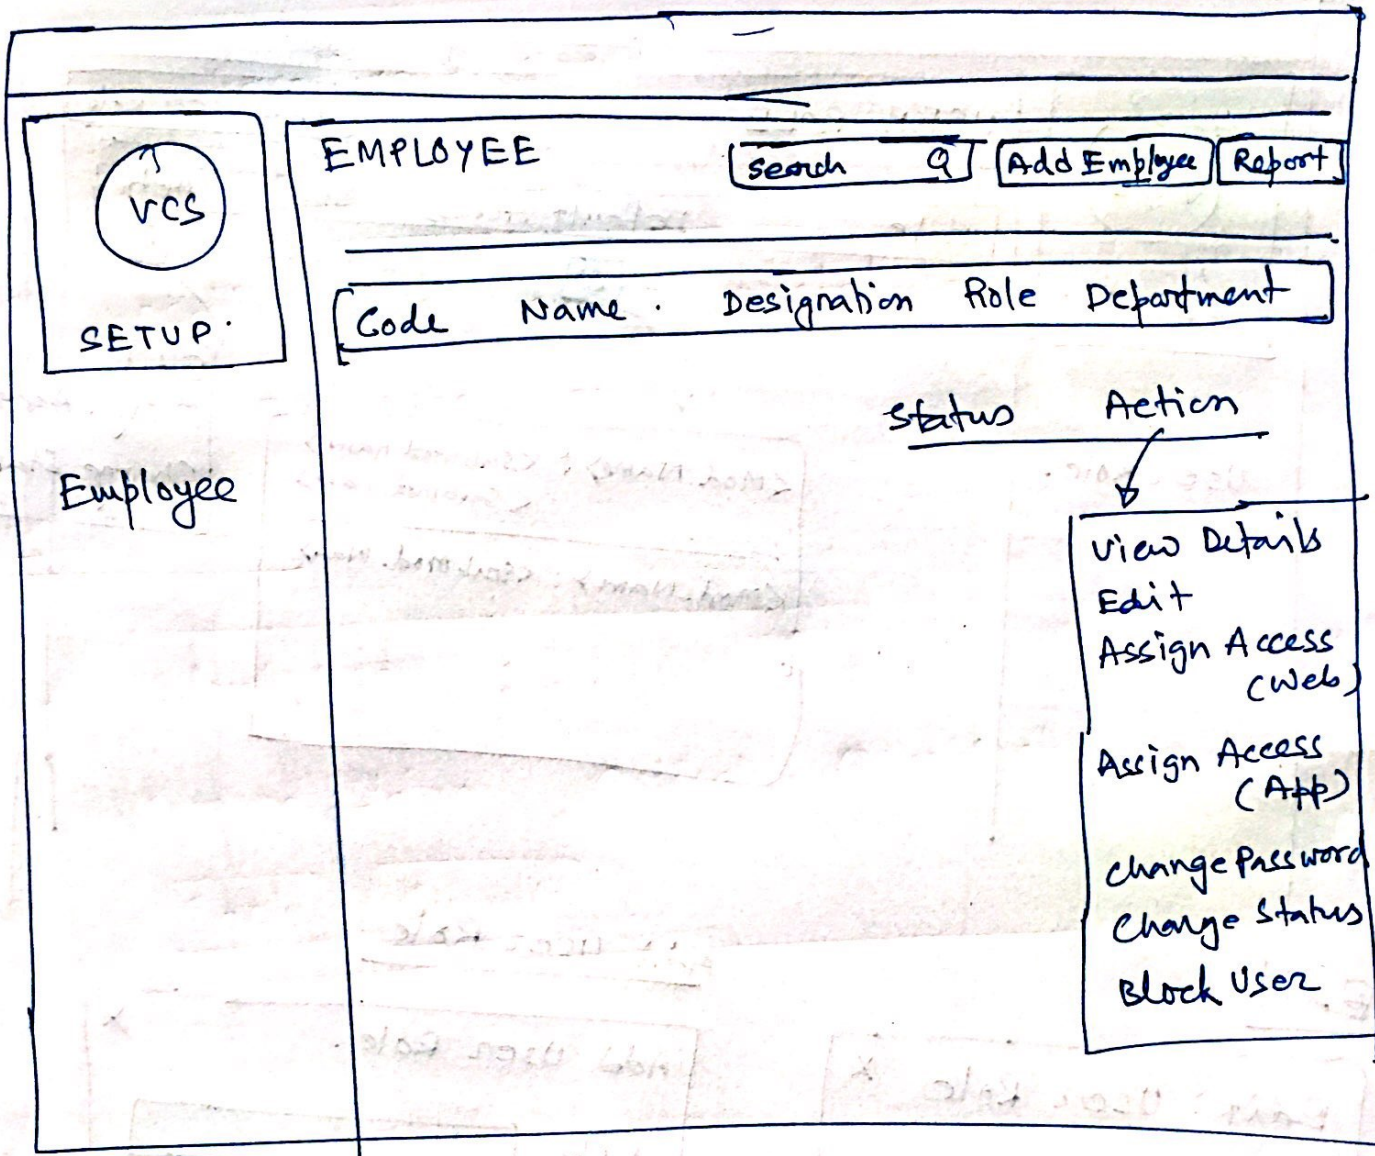 EMPLOYEE
search
Add Employee
Report
VCS
SETUP.
Code Name. Designation Role Department
Status Action
Employee
View Details
Edit
Assign Access
(Web)
Assign Access
(App)
Change Password
Change Status
Block User